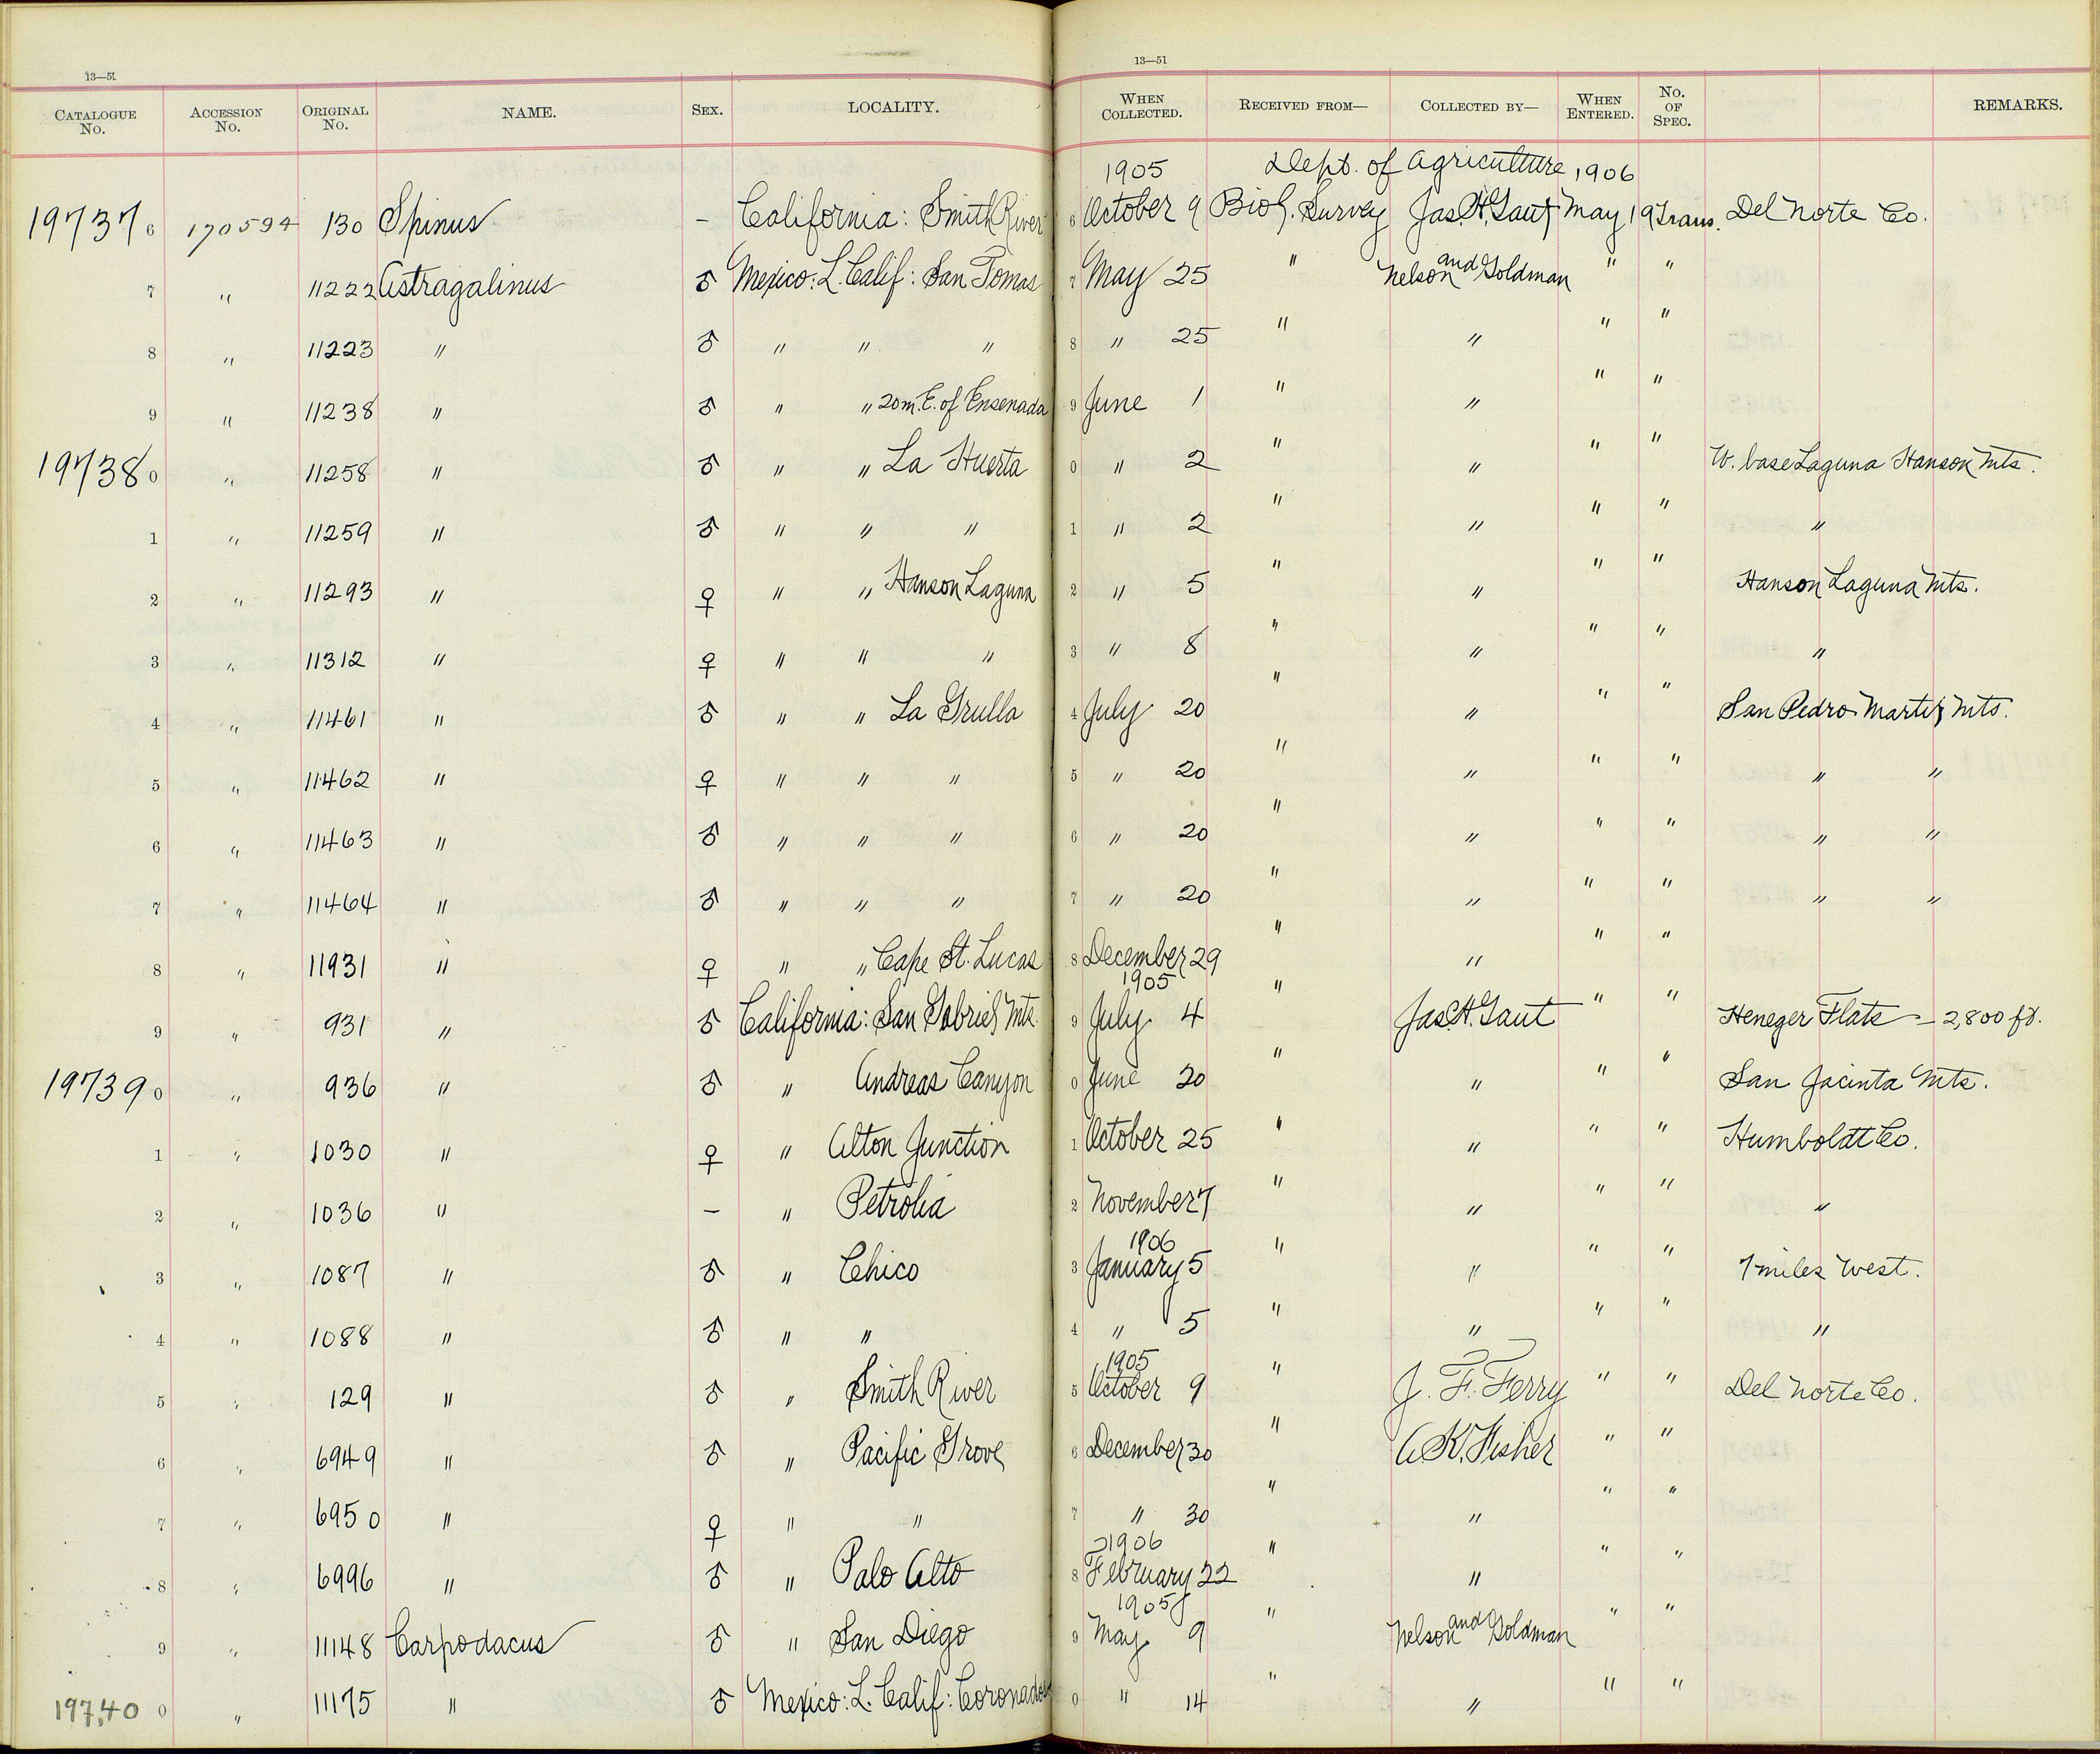 13—51
13—51
CATALOGUE No. ACCESSION No. ORIGINAL No. NAME. SEX. LOCALITY. WHEN COLLECTED. RECEIVED FROM— COLLECTED BY— WHEN ENTERED. No. OF SPEC. REMARKS.
1905 Dept. of Agriculture 1906
19737 6 170594 130 Spinus – California: Smith River 6 October 9 Biol. Survey Jas. H. Gaut May 19 Trans. Del Norte Co.
7 " 11222 Astragalinus ♂ Mexico: L. Calif: San Tomas 7 May 25 " Nelson and Goldman " "
8 " 11223 " ♂ " " " 8 " 25 " " " "
9 " 11238 " ♂ " " 20 m. E. of Ensenada 9 June 1 " " " "
19738 0 " 11258 " ♂ " " La Huerta 0 " 2 " " " " W. base Laguna Hanson Mts.
1 " 11259 " ♂ " " " 1 " 2 " " " " "
2 " 11293 " ♀ " " Hanson Laguna 2 " 5 " " " " Hanson Laguna Mts.
3 " 11312 " ♀ " " " 3 " 8 " " " " "
4 " 11461 " ♂ " " La Grulla 4 July 20 " " " " San Pedro Martir Mts.
5 " 11462 " ♀ " " " 5 " 20 " " " " " "
6 " 11463 " ♂ " " " 6 " 20 " " " " " "
7 " 11464 " ♂ " " " 7 " 20 " " " " " "
8 " 11931 " ♀ " " Cape St. Lucas 8 December 29 " " " "
1905
9 " 931 " ♂ California: San Gabriel Mts. 9 July 4 " Jas. H. Gaut " " Heneger Flats – 2,800 ft.
19739 0 " 936 " ♂ " Andreas Canyon 0 June 20 " " " " San Jacinta Mts.
1 " 1030 " ♀ " Alton Junction 1 October 25 " " " " Humboldt Co.
2 " 1036 " – " Petrolia 2 November 7 " " " " "
1906
3 " 1087 " ♂ " Chico 3 January 5 " " " " 7 miles West.
4 " 1088 " ♂ " " 4 " 5 " " " " "
1905
5 " 129 " ♂ " Smith River 5 October 9 " J. F. Ferry " " Del Norte Co.
6 " 6949 " ♂ " Pacific Grove 6 December 30 " A. K. Fisher " "
7 " 6950 " ♀ " " 7 " 30 " " " "
1906
8 " 6996 " ♂ " Palo Alto 8 February 22 " " " "
1905
9 " 11148 Carpodacus ♂ " San Diego 9 May 9 " Nelson and Goldman " "
19740 0 " 11175 " ♂ Mexico: L. Calif: Coronados 0 " 14 " " " "